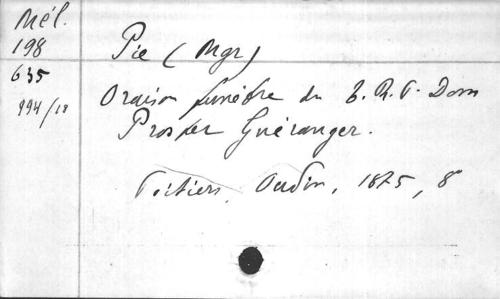 Mél.
198
635
994/18
Pie (Mgr)
Oraison funèbre du T. R. P. Dom
Prosper Guéranger.
Poitiers, Oudin, 1875, 8°